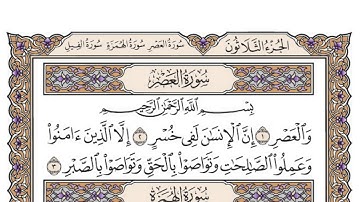 سُورَةُ العَصْرِ سُورَةُ الهُمَزَةِ سُورَةُ الفِيلِ الجُزْءُ الثَّلَاثُونَ
سُورَةُ العَصْرِ
بِسْمِ اللَّهِ الرَّحْمَٰنِ الرَّحِيمِ
وَالْعَصْرِ ١ إِنَّ الْإِنسَٰنَ لَفِي خُسْرٍ ٢ إِلَّا الَّذِينَ ءَامَنُوا
وَعَمِلُوا الصَّٰلِحَٰتِ وَتَوَاصَوْا بِالْحَقِّ وَتَوَاصَوْا بِالصَّبْرِ ٣
سُورَةُ الهُمَزَةِ